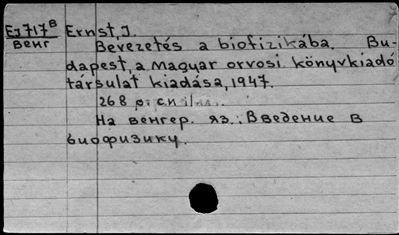 Ej717В Ernst, J.
Венг
Bevezetés a biofizikába. Bu-
dapest, a Magyar orvosi könyvkiadó
társulat kiadása, 1947.
268 p.
На венгер. яз.: Введение в
биофизику.